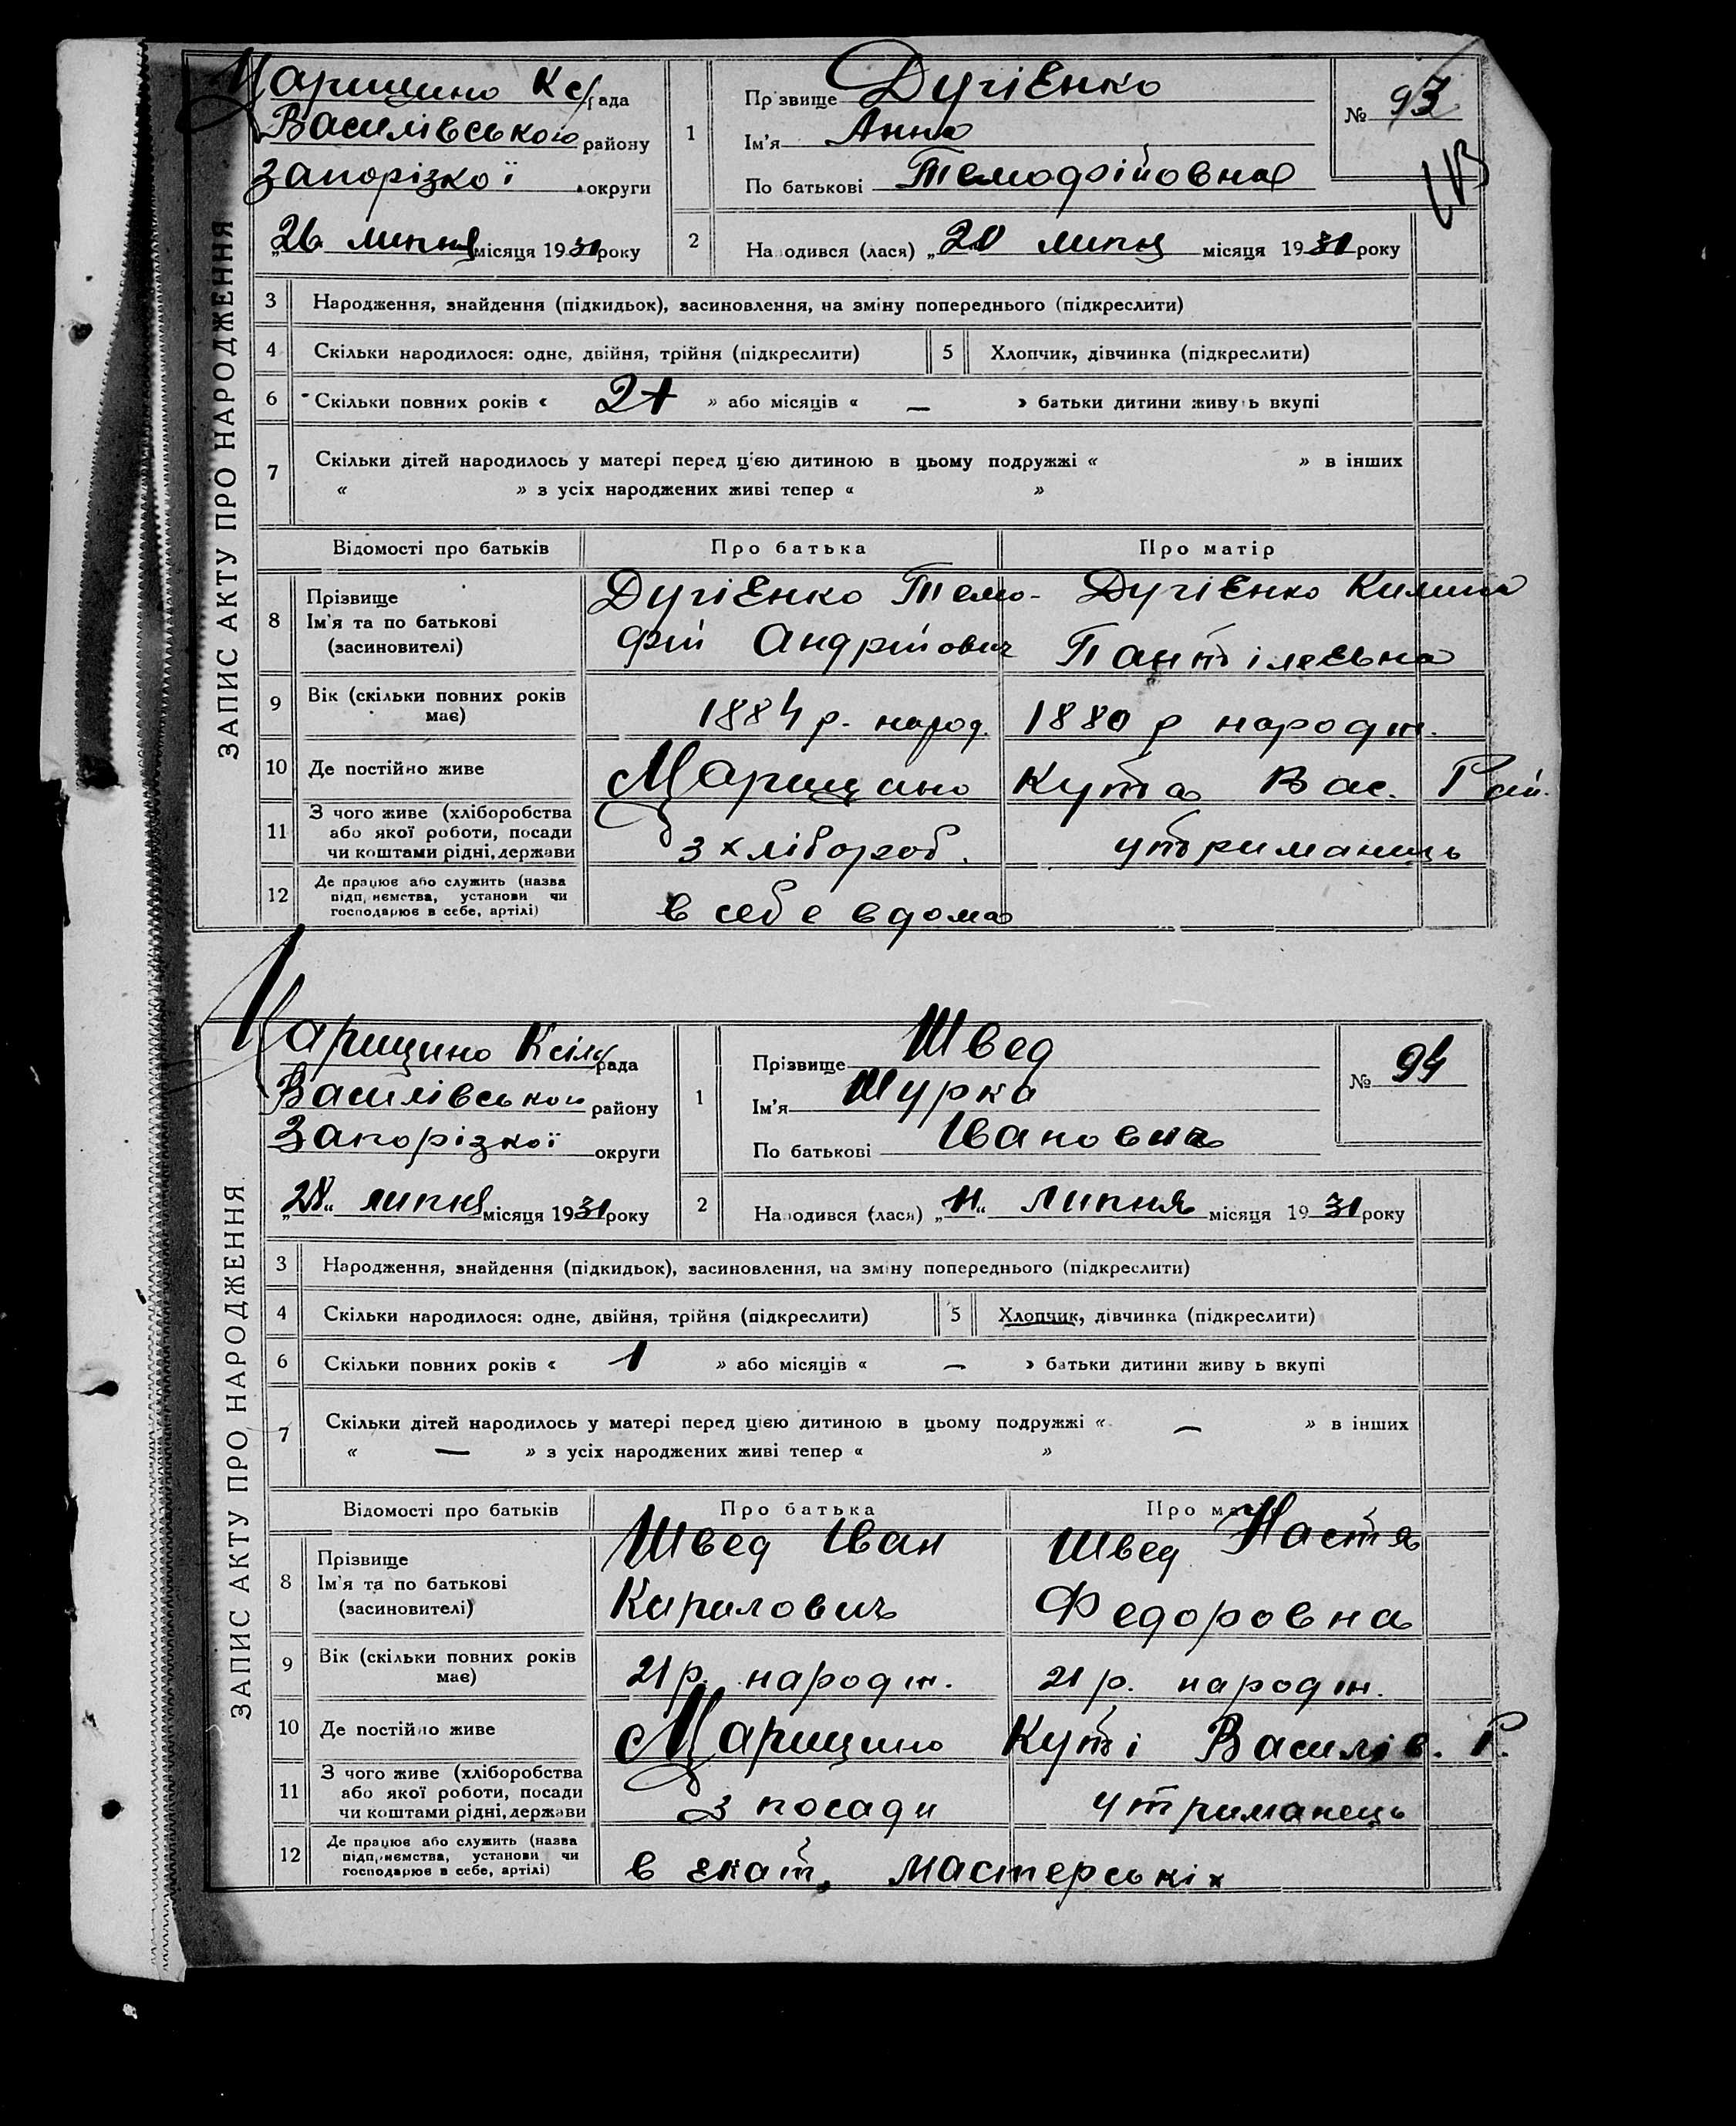 ЗАПИС АКТУ ПРО НАРОДЖЕННЯ
Царицино К с/рада
Василівського району
Запорізкої округи
„26 липня місяця 1931 року
1 Прізвище Дугіенко
Ім'я Анна
По батькові Темофійовна
№ 93
2 Народився (лася) „20 липня місяця 1931 року
3 Народження, знайдення (підкидьок), засиновлення, на зміну попереднього (підкреслити)
4 Скільки народилося: одне, двійня, трійня (підкреслити) 5 Хлопчик, дівчинка (підкреслити)
6 Скільки повних років « » або місяців « — » батьки дитини живуть вкупі
7 Скільки дітей народилось у матері перед цією дитиною в цьому подружжі « » в інших
« » з усіх народжених живі тепер « »
Відомості про батьків Про батька Про матір
8 Прізвище Ім'я та по батькові (засиновителі)
Дугіенко Темо- Дугіенко Килина
фій Андрійович Пантілеевна
9 Вік (скільки повних років має) 1884 р. народ. 1880 р народж.
10 Де постійно живе Царицино Кута Вас. Рай.
11 З чого живе (хліборобства
або якої роботи, посади
чи коштами рідні, держави
з хлібороб. утриманець
12 Де працює або служить (назва
підприємства, установи чи
господарює в себе, артілі)
в себе вдома
ЗАПИС АКТУ ПРО НАРОДЖЕННЯ
Царицино К сіль рада
Василівського району
Запорізкої округи
„28“ липня місяця 1931 року
1 Прізвище Швед
Ім'я Шурка
По батькові Івановна
№ 94
2 Народився (лася) „11“ липня місяця 1931 року
3 Народження, знайдення (підкидьок), засиновлення, на зміну попереднього (підкреслити)
4 Скільки народилося: одне, двійня, трійня (підкреслити) 5 Хлопчик, дівчинка (підкреслити)
6 Скільки повних років « 1 » або місяців « — » батьки дитини живуть вкупі
7 Скільки дітей народилось у матері перед цією дитиною в цьому подружжі « — » в інших
« — » з усіх народжених живі тепер « »
Відомості про батьків Про батька Про матір
8 Прізвище Ім'я та по батькові (засиновителі)
Швед Іван Швед Настя
Кирилович Федоровна
9 Вік (скільки повних років має) 21 р. народж. 21 р. народж.
10 Де постійно живе Царицино Куті Василів. Р.
11 З чого живе (хліборобства
або якої роботи, посади
чи коштами рідні, держави
З посади утриманець
12 Де працює або служить (назва
підприємства, установи чи
господарює в себе, артілі)
в екат. мастерських